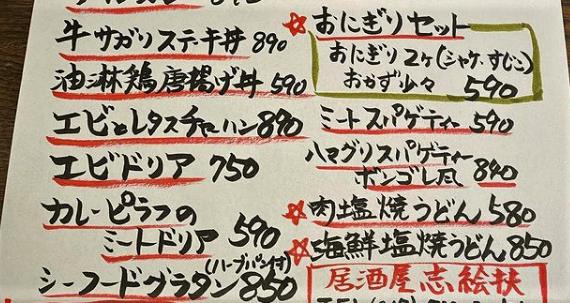 牛サガリステーキ丼 890
油淋鶏唐揚げ丼 590
エビとレタスチャーハン 890
エビドリア 750
カレーピラフの
ミートドリア 590
(ハーブパン付)
シーフードグラタン 850
☆おにぎりセット
おにぎり2ヶ(シャケ・すじこ)
おかず少々 590
ミートスパゲティー 590
ハマグリスパゲティー
ボンゴレ風 840
☆肉塩焼うどん 580
☆海鮮塩焼うどん 850
居酒屋 志絵扶